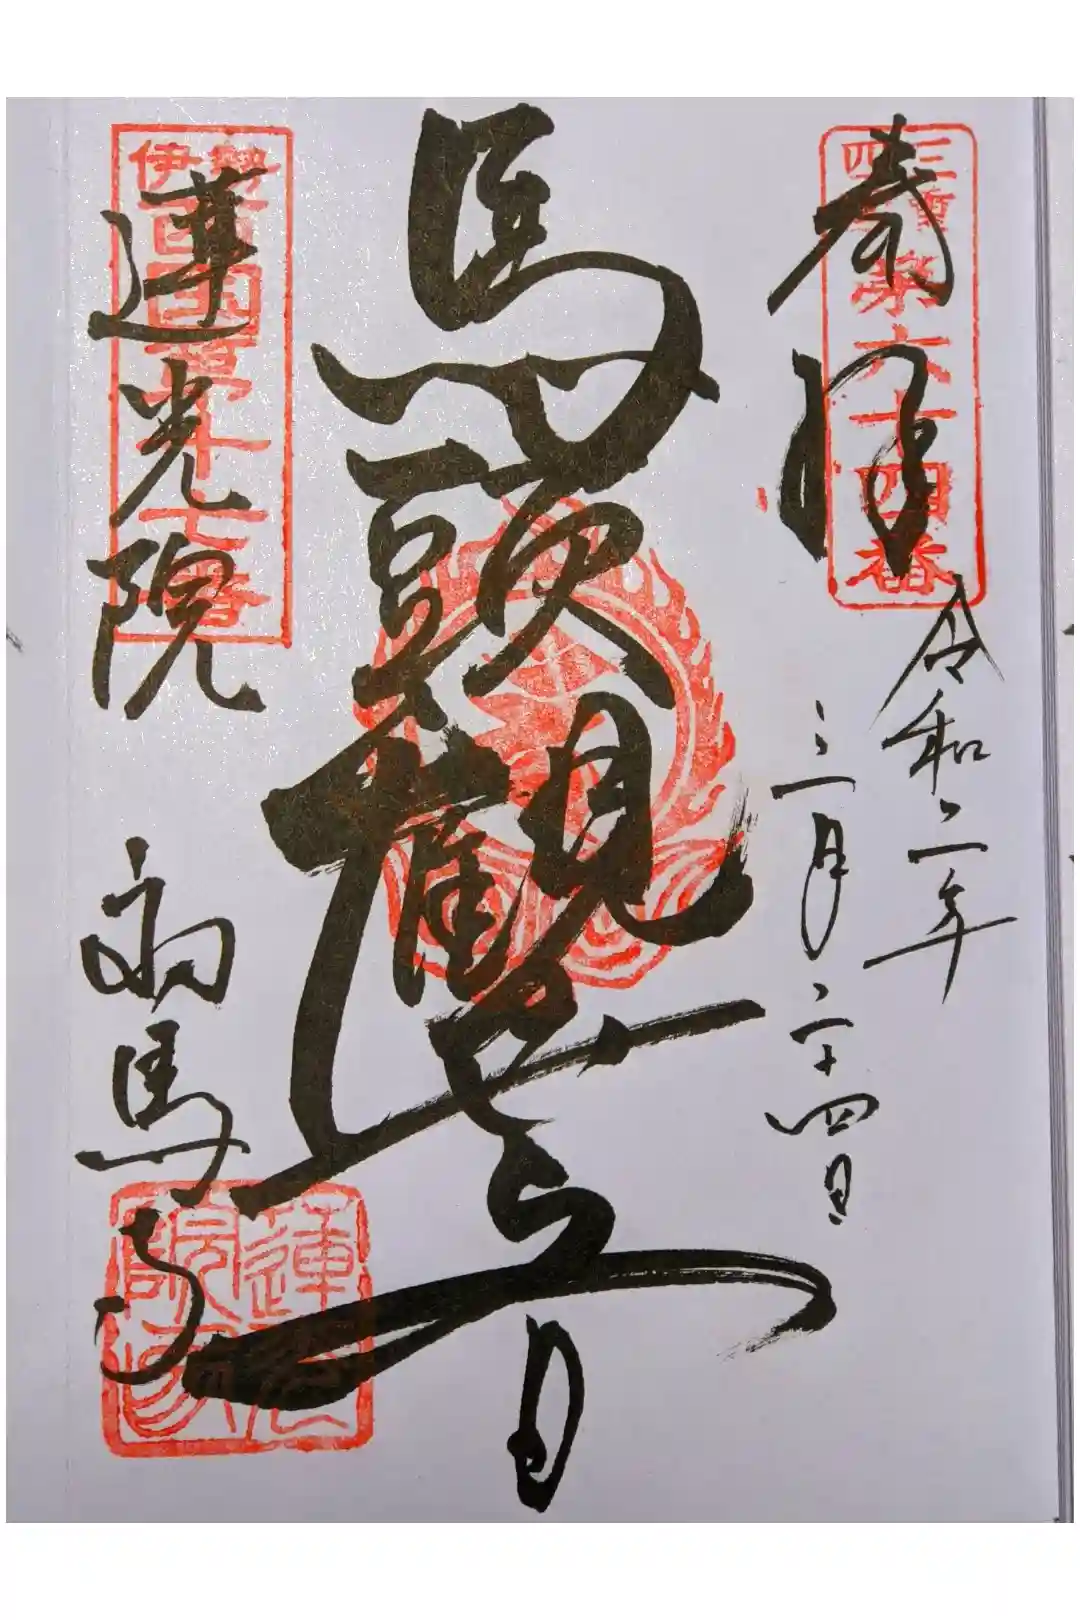 三重四国第六十四番
奉拝
令和二年
三月二十四日
馬頭觀世音
伊勢西国第十七番
蓮光院
初馬寺